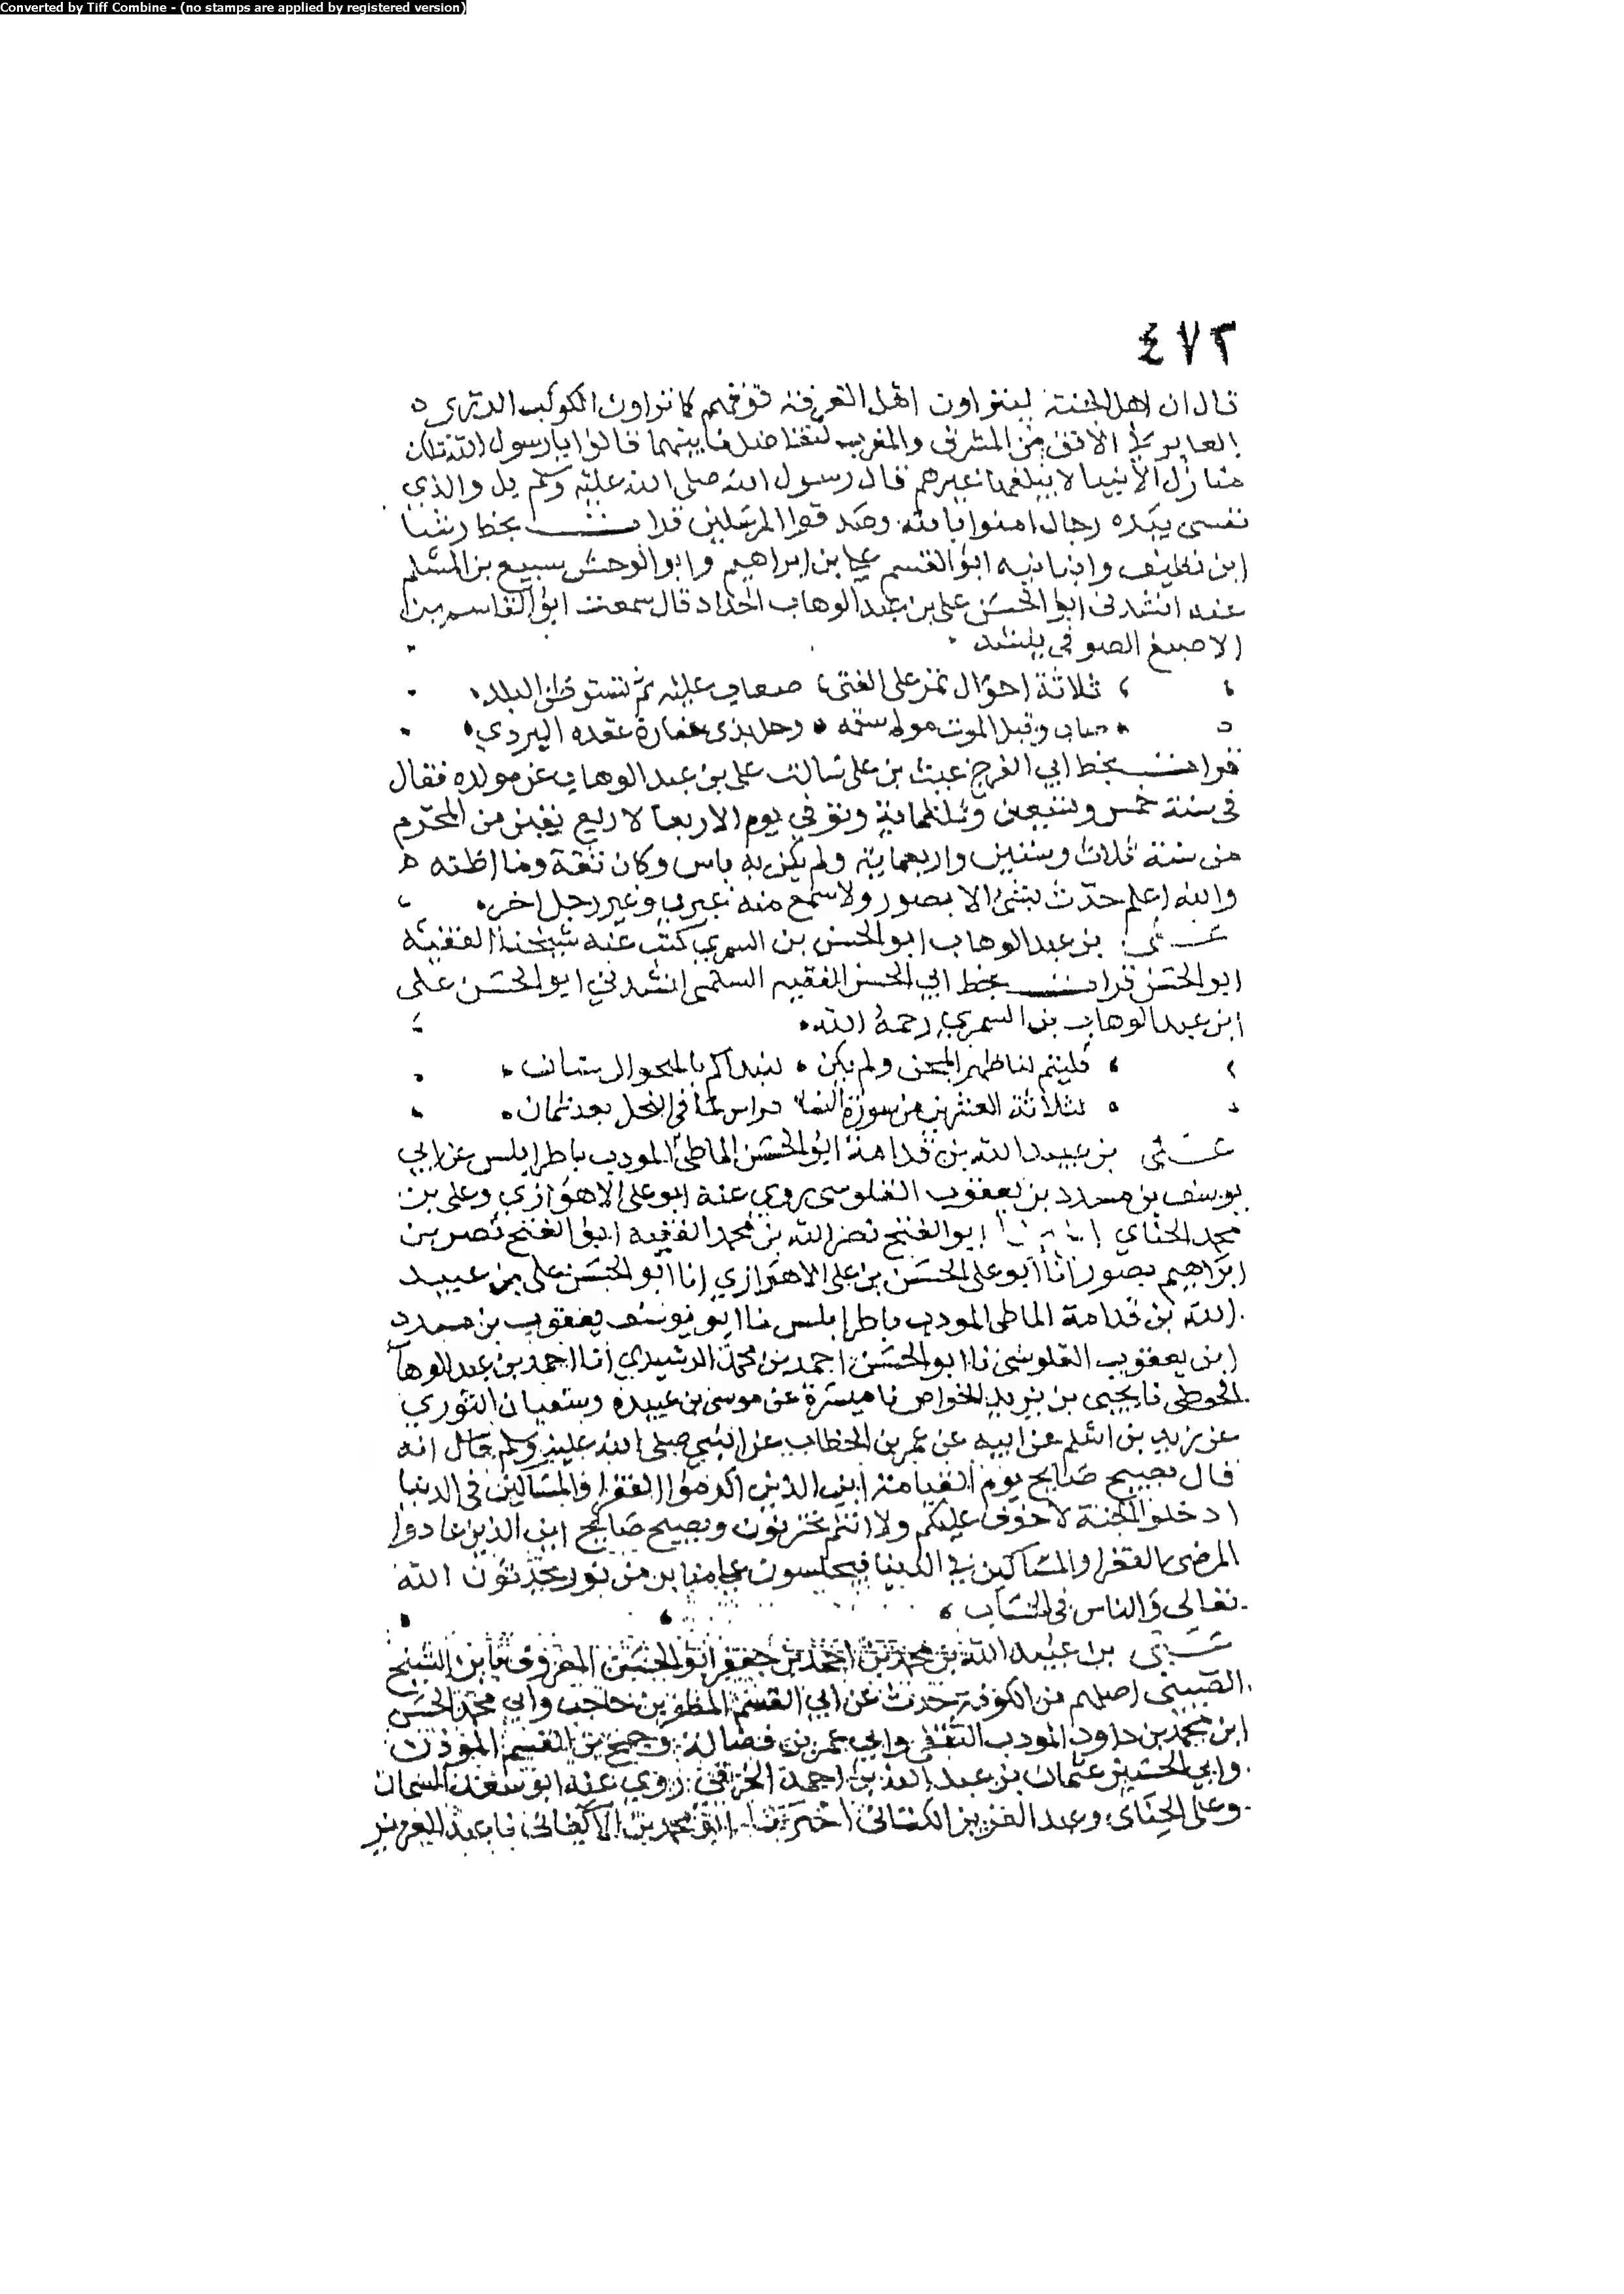 Converted by Tiff Combine - (no stamps are applied by registered version)
٤٧٢
قال ان اهل الجنة ليتراون اهل الغرفة فوقهم كما تراون الكوكب الدري
الغابر في الافق من المشرق والمغرب لتفاضل ما بينهما قالوا يا رسول الله تلك
منازل الأنبيا لا يبلغها غيرهم قال رسول الله صلى الله عليه وسلم بلى والذي
نفسي بيده رجال امنوا بالله وصدقوا المرسلين قرات بخط رشا
ابن نظيف وانبانيه ابو القسم علي بن ابراهيم وابو الوحش سبيع بن المسلم
عنه انشدني ابو الحسن علي بن عبد الوهاب الحداد قال سمعت ابو القاسم بن
الاصبغ الصوفي ينشد
ثلاثة احوال تمر على الفتى صعاب عليه ثم تستوطن البلد
وقبل الموت
قرات بخط ابي الفرج غيث بن علي سالت علي بن عبد الوهاب عن مولده فقال
في سنة خمس وسبعين وثلثماية وتوفي يوم الاربعا لاربع بقين من المحرم
من سنة ثلاث وستين واربعماية ولم يكن به باس وكان ثقة وما اظنه
والله اعلم حدث بشئ الا بصور ولا سمع منه غيري وغير رجل اخر
علي بن عبد الوهاب ابو الحسن بن السمري كتب عنه شيخنا الفقيه
ابو الحسن قرات بخط ابي الحسن الفقيه السلمي انشدني ابو الحسن علي
ابن عبد الوهاب بن السمري رحمه الله
قلبتم لنا ظهر المجن ولم يكن
لثلاثة العشرين من سورة النسا في النحل بعد ثمان
علي بن عبيد الله بن قدامة ابو الحسن الماطي المودب باطرابلس عن ابي
يوسف بن مسدد بن يعقوب القلوسي روى عنه ابو علي الاهوازي وعلي بن
محمد الحناي ابو الفتح نصر الله بن محمد الفقيه ابو الفتح نصر بن
ابراهيم بصور انا ابو علي الحسن بن علي الاهوازي انا ابو الحسن علي بن عبيد
الله بن قدامة الماطي المودب باطرابلس نا ابو يوسف يعقوب بن مسدد
ابن يعقوب القلوسي نا ابو الحسن احمد بن محمد الرشيدي انا احمد بن عبد الوهاب
الحوطي نا يحيى بن يزيد الخواص نا ميسرة عن موسى بن عبيدة وسفيان الثوري
عن زيد بن اسلم عن ابيه عن عمر بن الخطاب عن النبي صلى الله عليه وسلم قال انه
قال يصيح صايح يوم القيامة اين الذين اكرموا الفقرا والمساكين في الدنيا
ادخلوا الجنة لا خوف عليكم ولا انتم تحزنون ويصيح صايح اين الذين عادوا
المرضى الفقرا والمساكين في الدنيا فيجلسون على منابر من نور يحدثون الله
تعالى والناس في الحساب
علي بن عبيد الله بن محمد بن احمد بن جعفر ابو الحسن المعروف بابن الشيخ
الصيني اصلهم من الكوفة حدث عن ابي القسم المظفر بن حاجب وابي محمد الحسن
ابن محمد بن داود المودب الثقفي وابي عمر بن فضالة وجمح بن القسم المؤذن
وابي الحسين عثمان بن عبد الله بن احمد الخرقي روى عنه ابو سعد السمان
وعلي الحناي وعبد العزيز الكتاني اخبرنا ابو محمد بن الاكفاني نا عبد العزيز